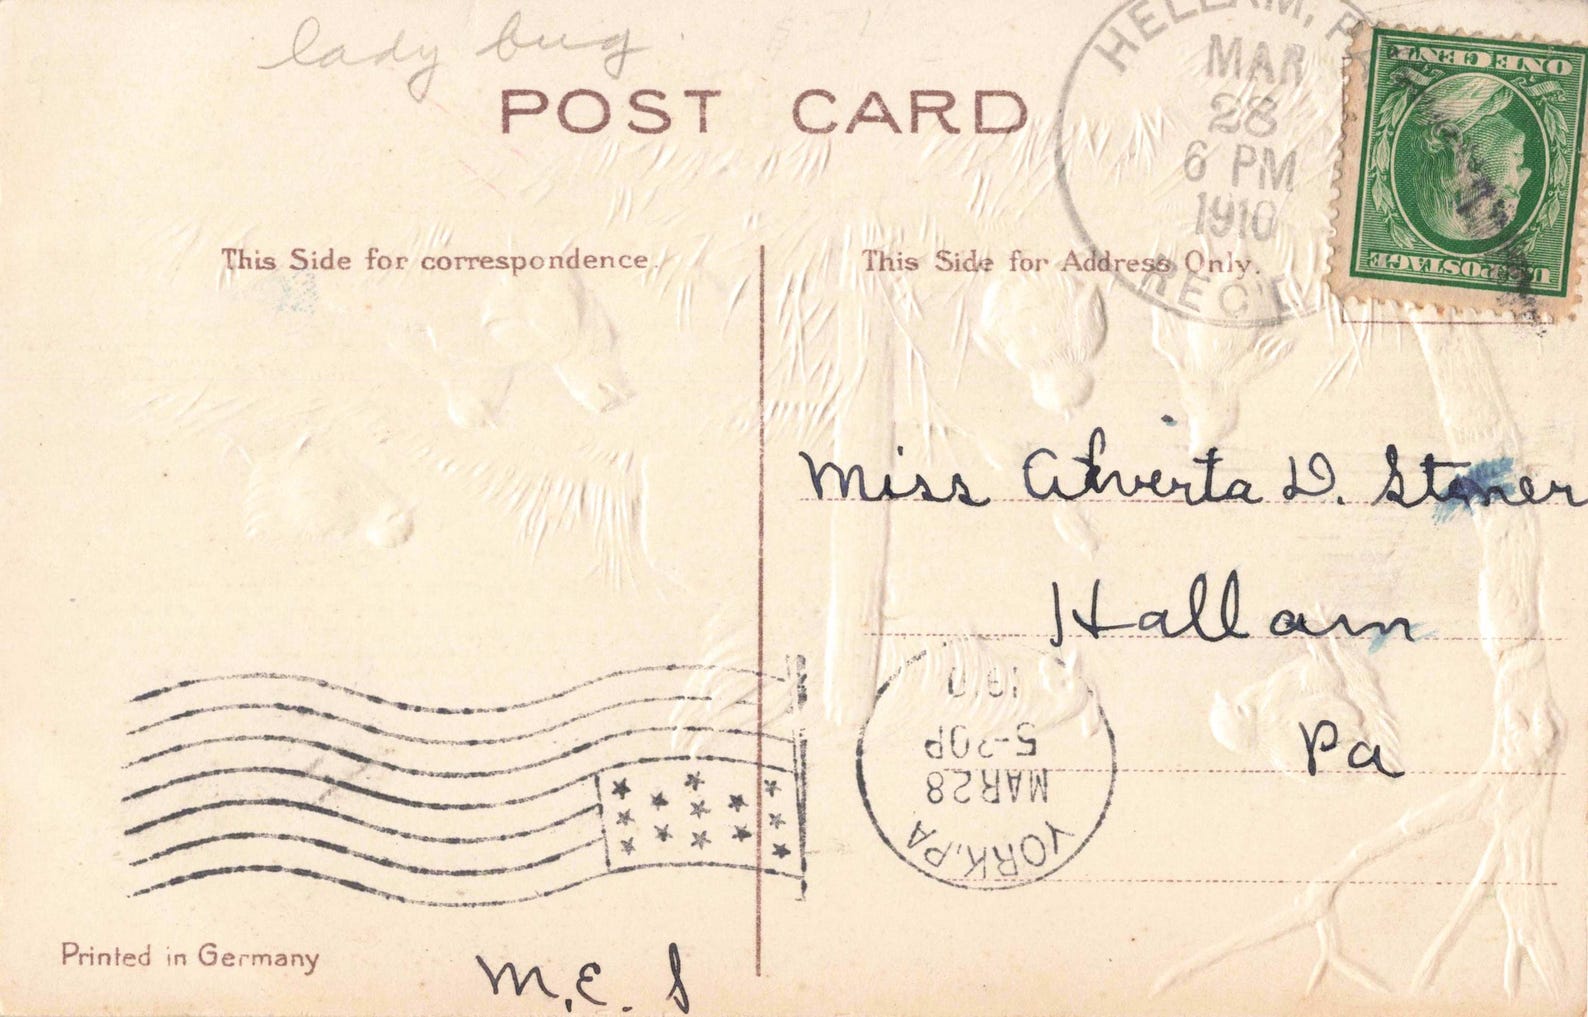 lady bug
POST CARD
HELLAM, PA.
MAR
28
6 PM
1910
REC'D
ONE CENT
U.S. POSTAGE
This Side for correspondence.
This Side for Address Only.
Miss Alverta D. Stoner
Hallam
Pa
YORK, PA
MAR 28
5-30P
1910
Printed in Germany
M. E. S